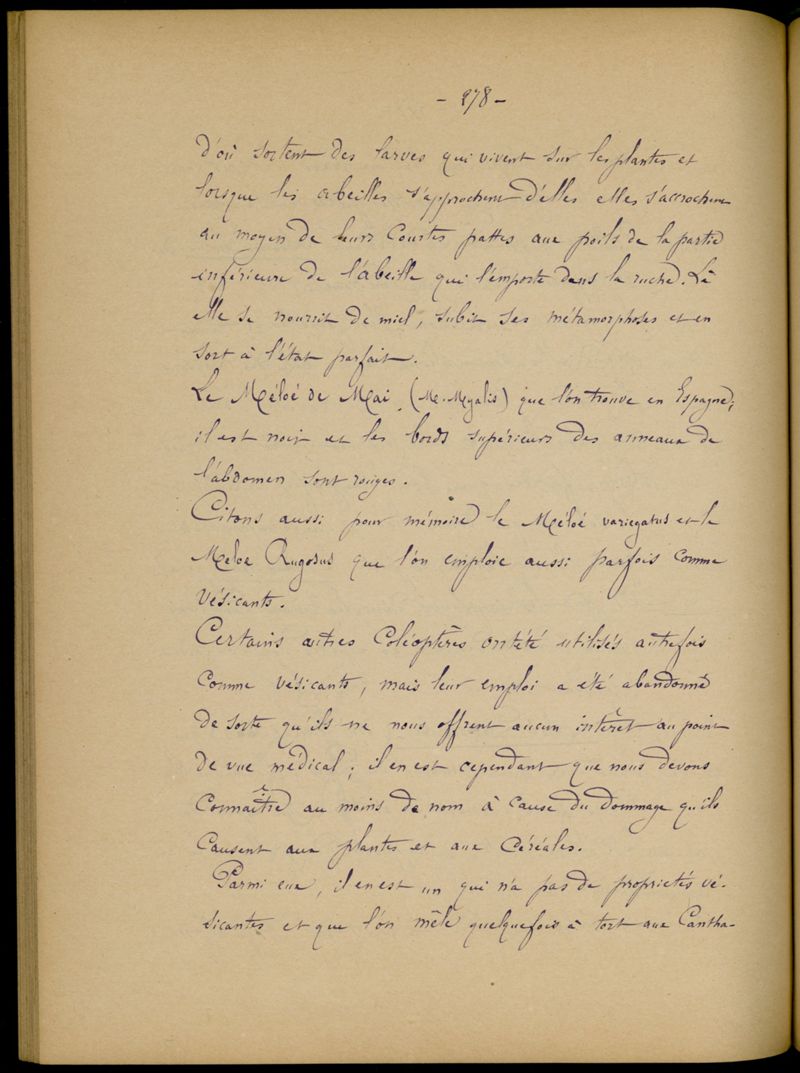 - 278 -
d'où sortent des larves qui vivent sur les plantes et
lorsque les abeilles s'approchent d'elles elles s'accrochent
au moyen de leurs courtes pattes aux poils de la partie
inférieure de l'abeille qui l'emporte dans la ruche. Là
elle se nourrit de miel, subit ses métamorphoses et en
sort à l'état parfait.
Le Méloé de Mai (M. Myalis) que l'on trouve en Espagne;
il est noir et les bords supérieurs des anneaux de
l'abdomen sont rouges.
Citons aussi pour mémoire le Méloé variegatus et le
Meloe Rugosus que l'on emploie aussi parfois comme
vésicants.
Certains autres Coléoptères ont été utilisés autrefois
comme vésicants, mais leur emploi a été abandonné
de sorte qu'ils ne nous offrent aucun intérêt au point
de vue médical; il en est cependant que nous devons
connaître au moins de nom à cause du dommage qu'ils
causent aux plantes et aux céréales.
Parmi eux, il en est un qui n'a pas de propriétés vé-
sicantes et que l'on mêle quelquefois à tort aux Cantha-